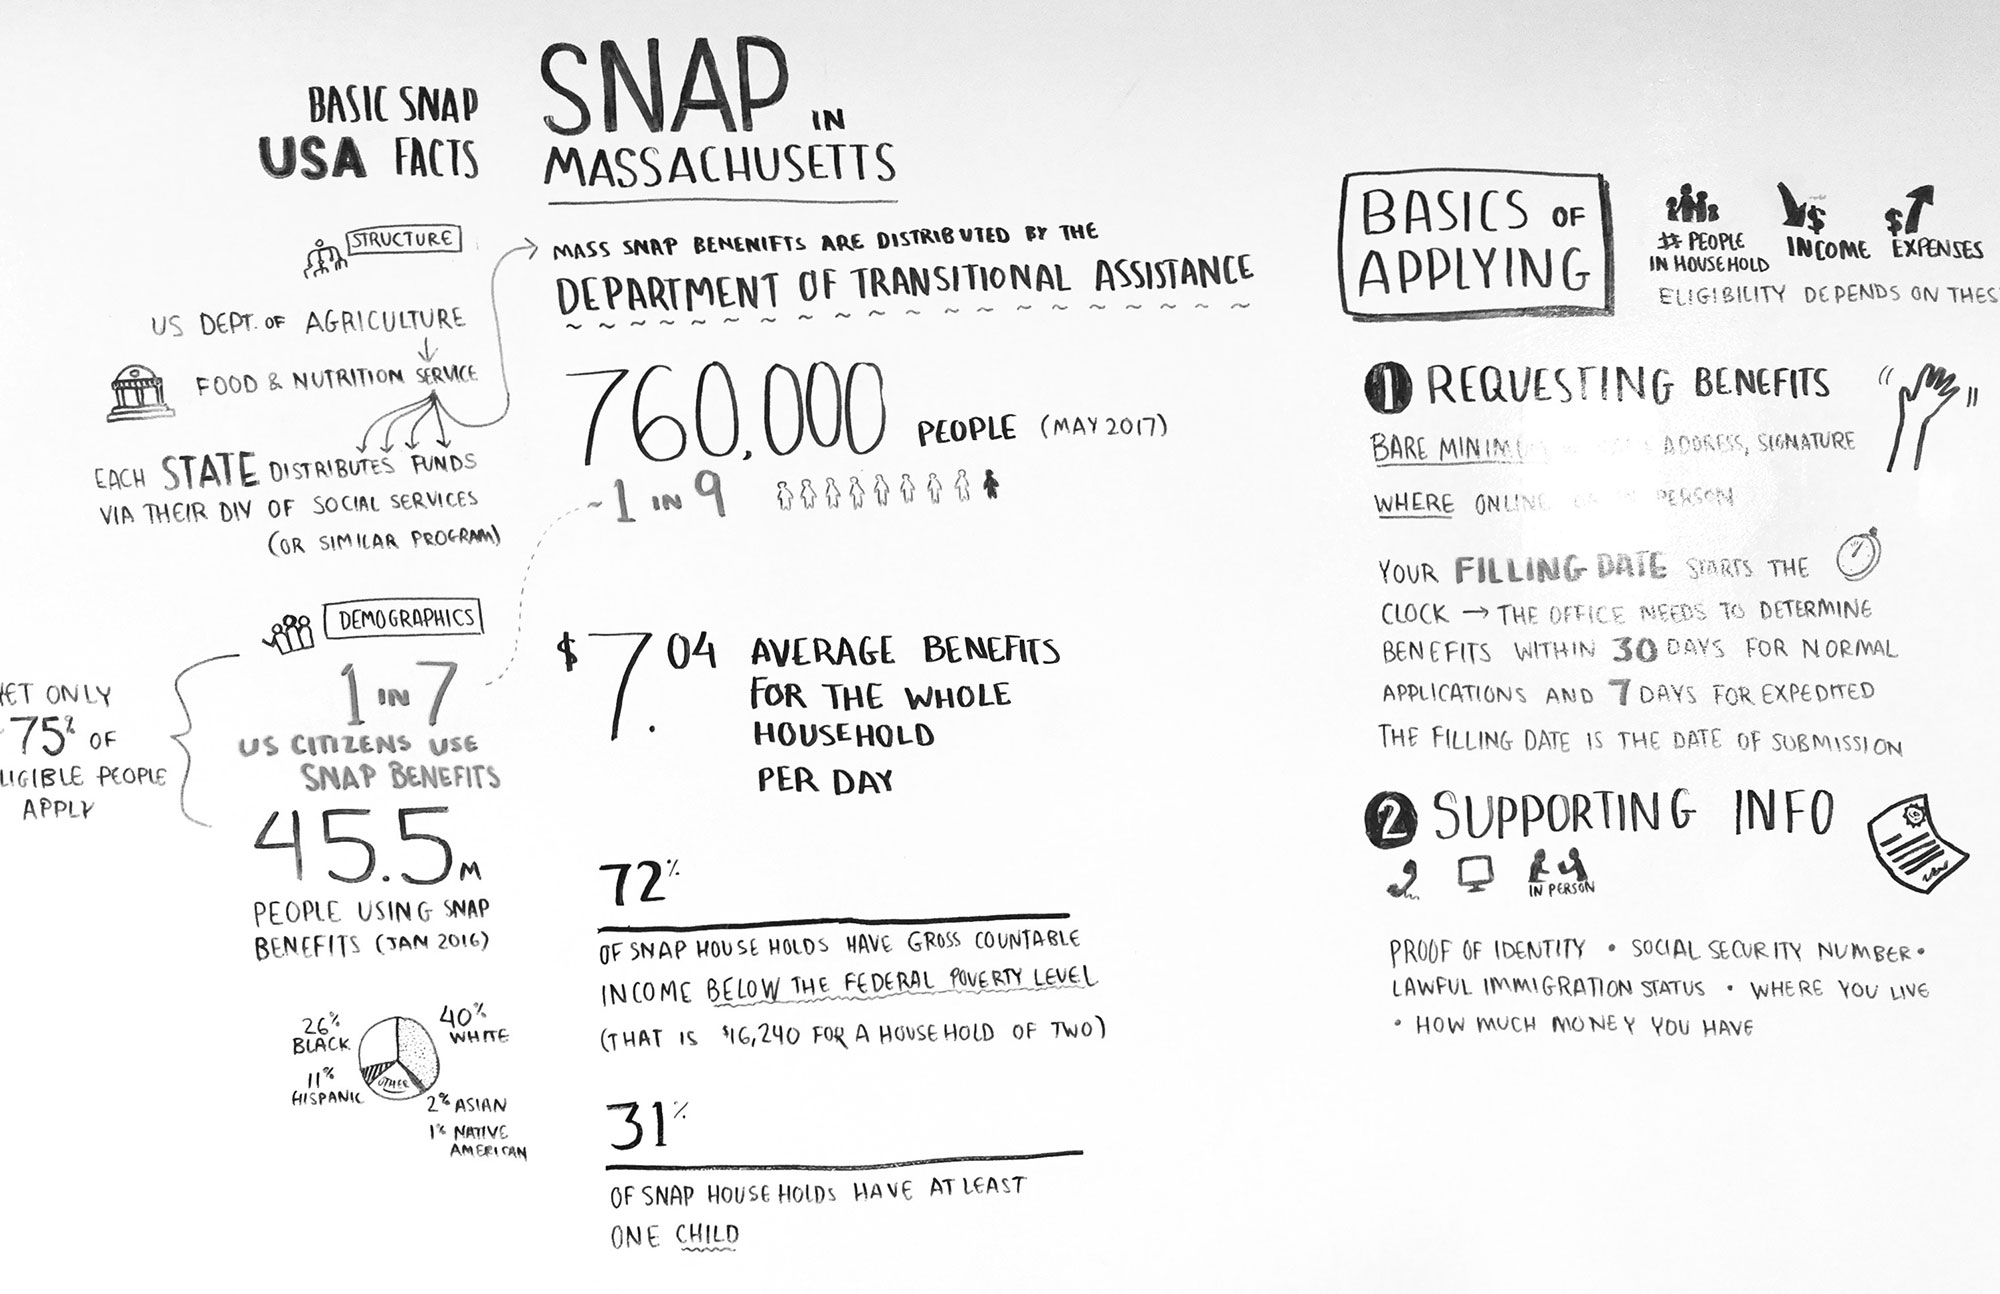 BASIC SNAP
USA FACTS
STRUCTURE
US DEPT. OF AGRICULTURE
FOOD & NUTRITION SERVICE
EACH STATE DISTRIBUTES FUNDS
VIA THEIR DIV OF SOCIAL SERVICES
(OR SIMILAR PROGRAM)
DEMOGRAPHICS
1 IN 7
US CITIZENS USE
SNAP BENEFITS
ONLY
75% OF
PEOPLE
APPLY
45.5M
PEOPLE USING SNAP
BENEFITS (JAN 2016)
26%
BLACK
40%
WHITE
11%
HISPANIC
OTHER
2% ASIAN
1% NATIVE
AMERICAN
SNAP IN
MASSACHUSETTS
MASS SNAP BENENIFTS ARE DISTRIBUTED BY THE
DEPARTMENT OF TRANSITIONAL ASSISTANCE
760,000 PEOPLE (MAY 2017)
~1 IN 9
$7.04 AVERAGE BENEFITS
FOR THE WHOLE
HOUSEHOLD
PER DAY
72%
OF SNAP HOUSEHOLDS HAVE GROSS COUNTABLE
INCOME BELOW THE FEDERAL POVERTY LEVEL
(THAT IS $16,240 FOR A HOUSEHOLD OF TWO)
31%
OF SNAP HOUSEHOLDS HAVE AT LEAST
ONE CHILD
BASICS OF
APPLYING
# PEOPLE
IN HOUSEHOLD
$
INCOME
$
EXPENSES
ELIGIBILITY DEPENDS ON
1 REQUESTING BENEFITS
BARE ADDRESS, SIGNATURE
WHERE ONLINE PERSON
YOUR FILLING DATE STARTS THE
CLOCK → THE OFFICE NEEDS TO DETERMINE
BENEFITS WITHIN 30 DAYS FOR NORMAL
APPLICATIONS AND 7 DAYS FOR EXPEDITED
THE FILLING DATE IS THE DATE OF SUBMISSION
2 SUPPORTING INFO
IN PERSON
PROOF OF IDENTITY • SOCIAL SECURITY NUMBER •
LAWFUL IMMIGRATION STATUS • WHERE YOU LIVE
• HOW MUCH MONEY YOU HAVE